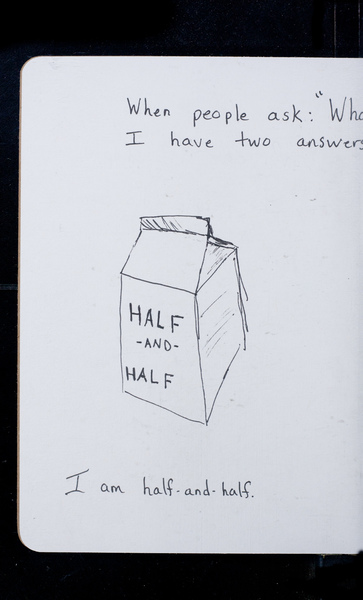 When people ask: "Wha
I have two answers
HALF
-AND-
HALF
I am half-and-half.